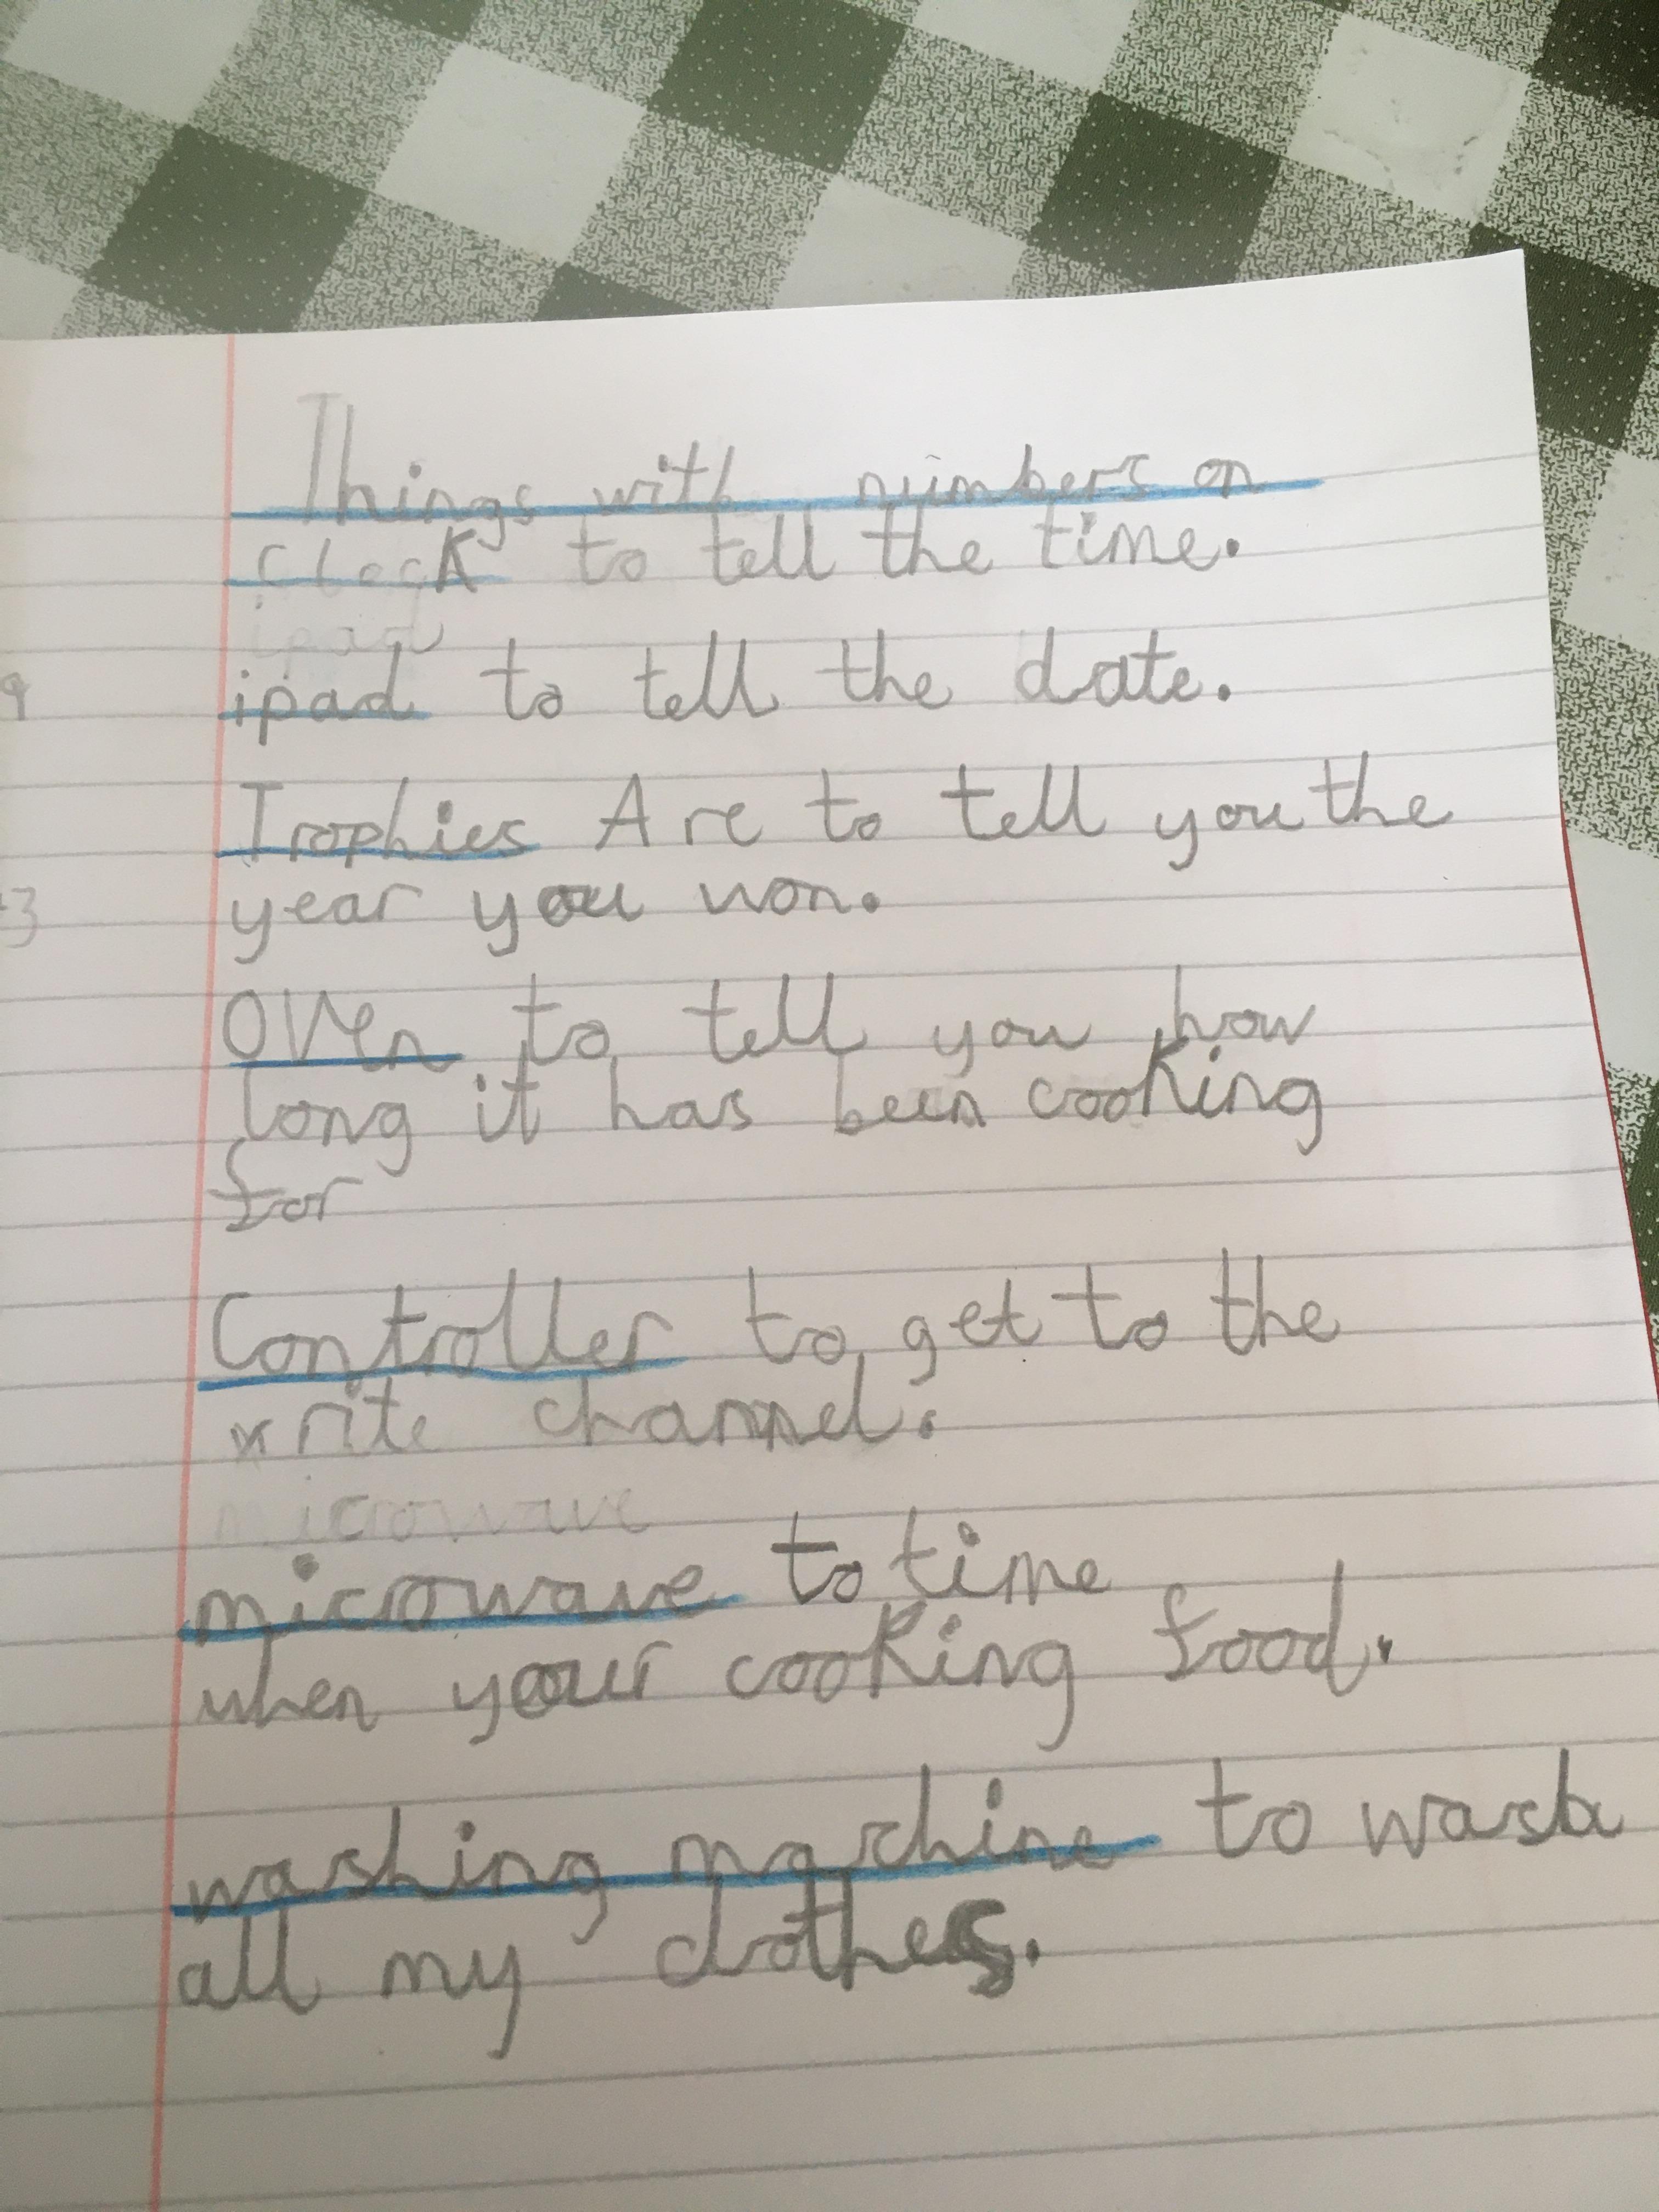 Things with numbers on
clock to tell the time.
ipad
ipad to tell the date.
9
Trophies Are to tell you the
year you won.
3
Oven to tell you how
long it has been cooking
for
Controller to get to the
write channel.
microwave
microwave to time
when your cooking food.
washing machine to wash
all my clothes.